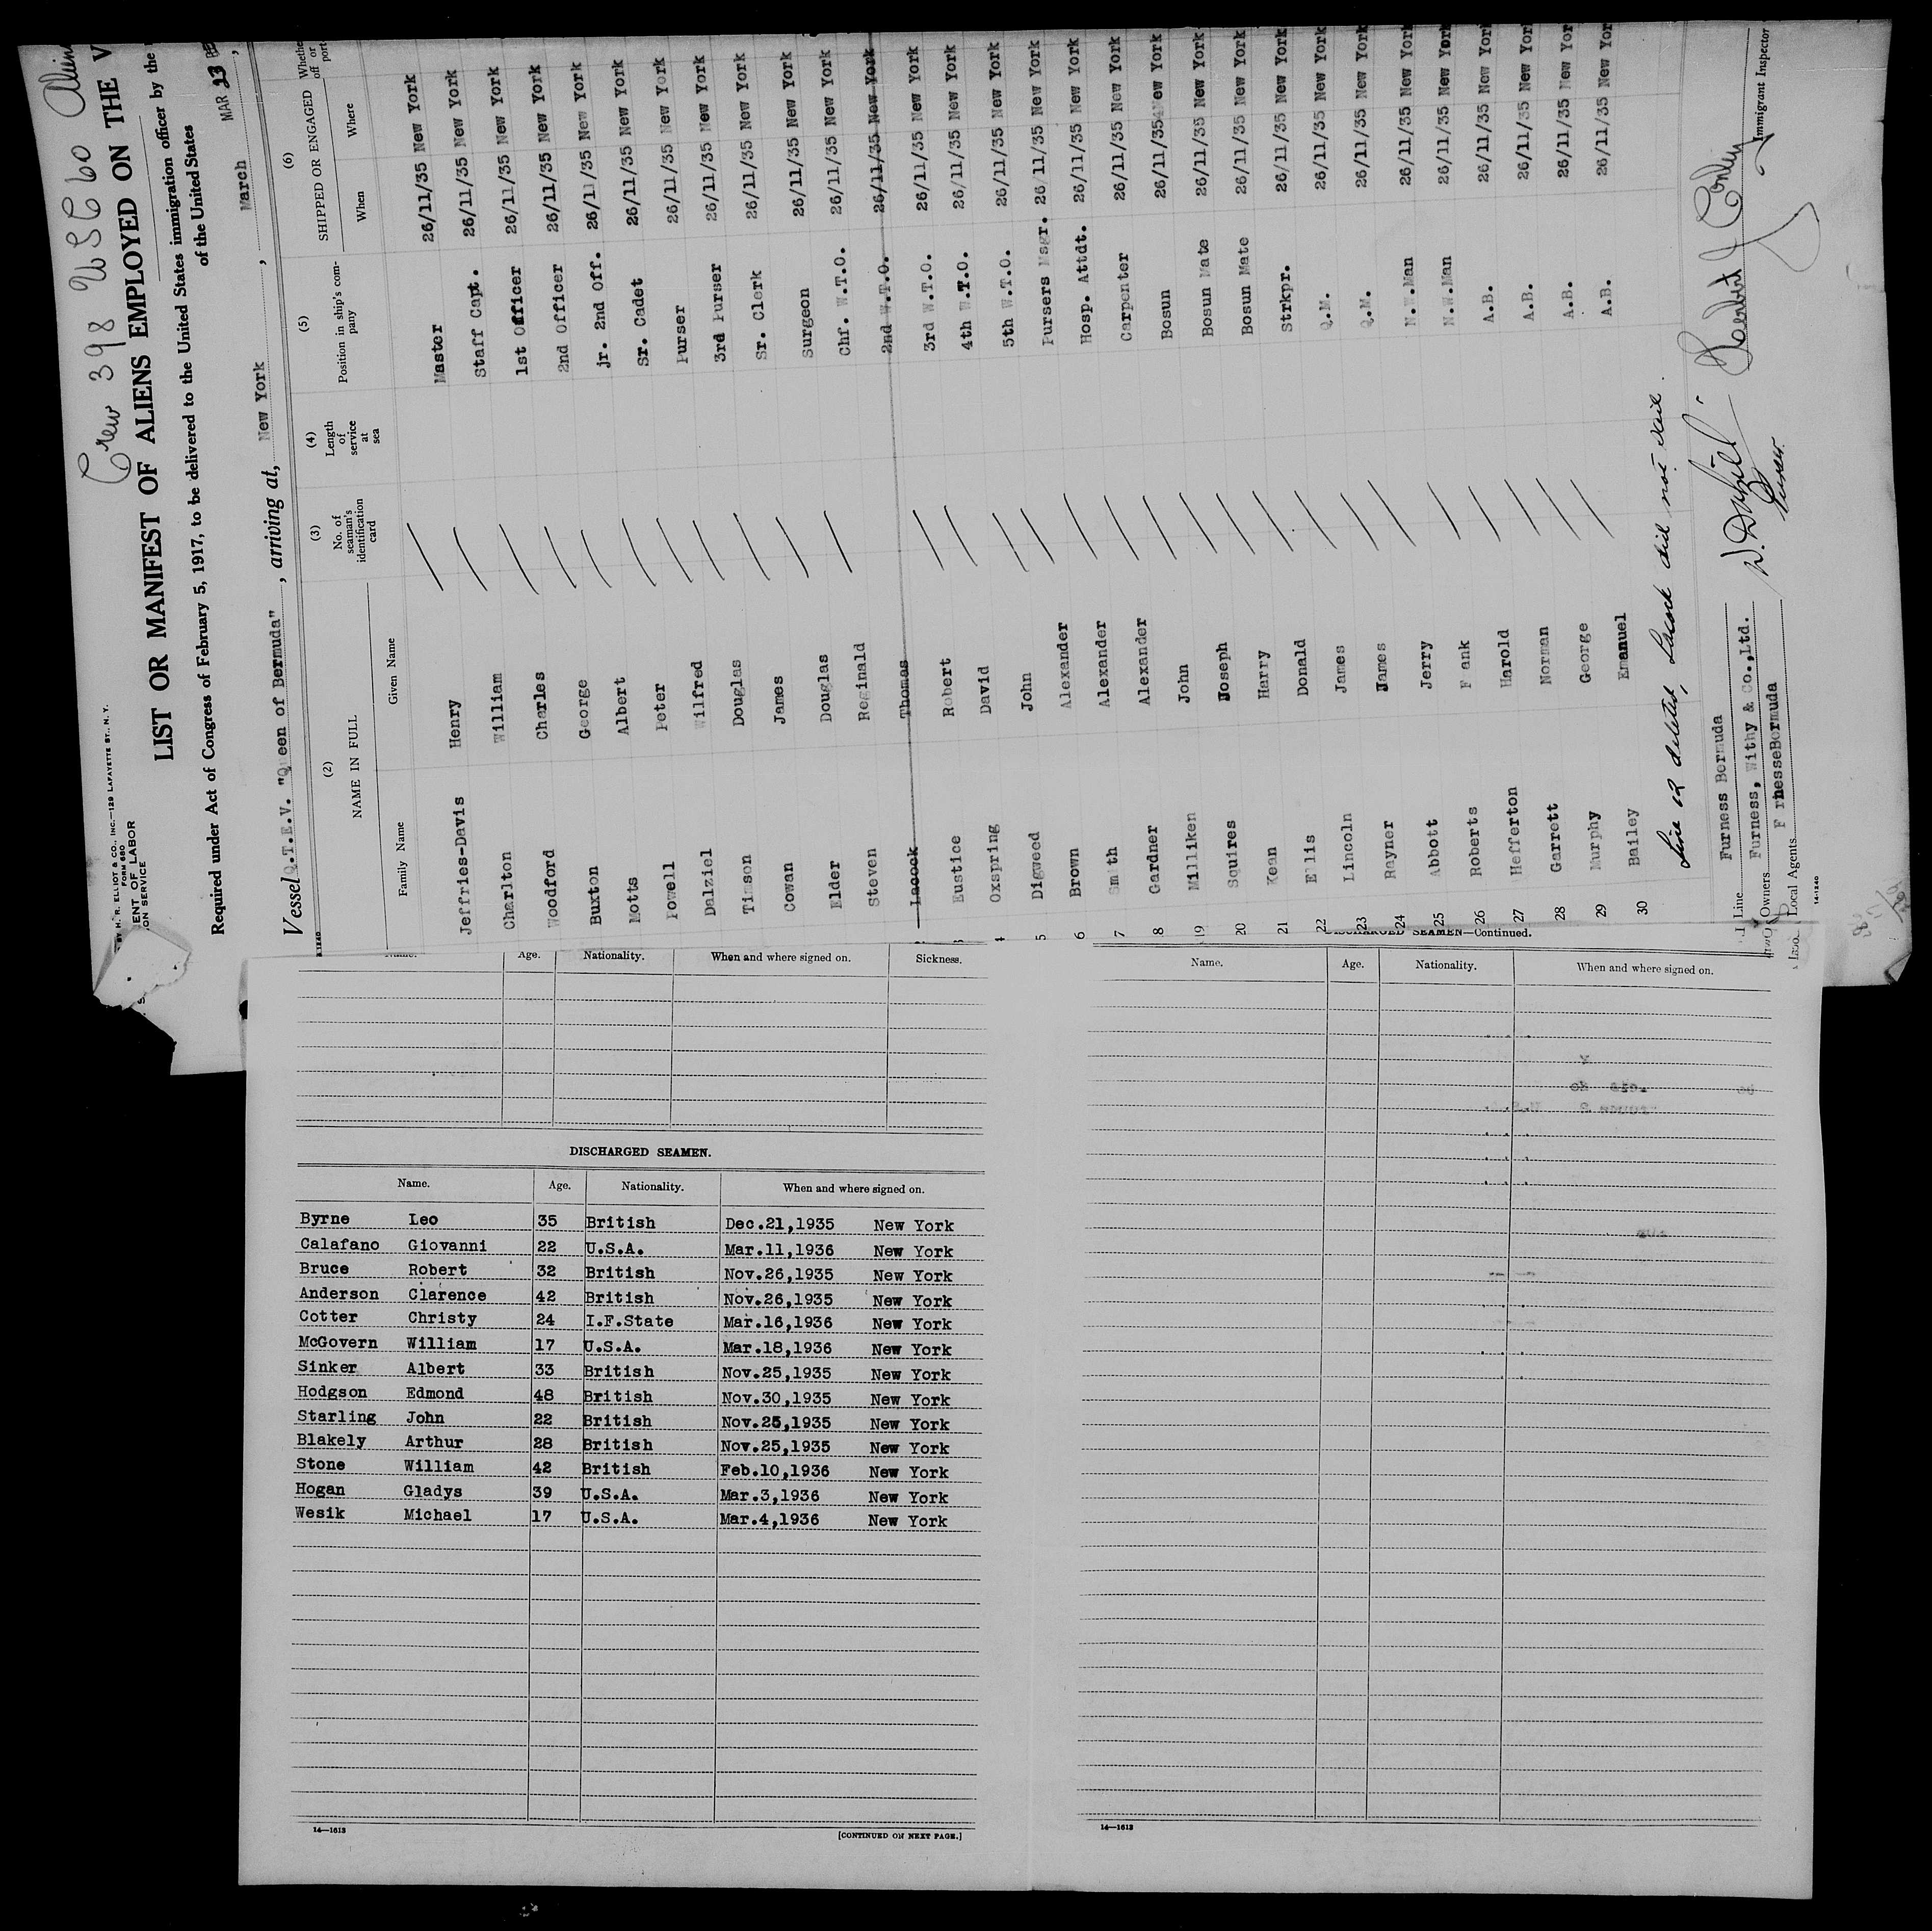 Crew 398 USC 60
BY H. R. ELLIOT & CO., INC.—129 LAFAYETTE ST., N. Y.
FORM 680
ENT OF LABOR
ON SERVICE
LIST OR MANIFEST OF ALIENS EMPLOYED ON THE V
Required under Act of Congress of February 5, 1917, to be delivered to the United States immigration officer by the
of the United States
MAR 23
Vessel Q.T.E.V. "Queen of Bermuda", arriving at, New York, March
(2) (3) (4) (5) (6)
NAME IN FULL No. of seaman's identification card Length of service at sea Position in ship's company SHIPPED OR ENGAGED
Family Name Given Name When Where
Jeffries-Davis Henry Master 26/11/35 New York
Charlton William Staff Capt. 26/11/35 New York
Woodford Charles 1st Officer 26/11/35 New York
Buxton George 2nd Officer 26/11/35 New York
Motts Albert jr. 2nd Off. 26/11/35 New York
Powell Peter Sr. Cadet 26/11/35 New York
Dalziel Wilfred Purser 26/11/35 New York
Timson Douglas 3rd Purser 26/11/35 New York
Cowan James Sr. Clerk 26/11/35 New York
Elder Douglas Surgeon 26/11/35 New York
Steven Reginald Chf. W.T.O. 26/11/35 New York
Lacock Thomas 2nd W.T.O. 26/11/35 New York
Eustice Robert 3rd W.T.O. 26/11/35 New York
Oxspring David 4th W.T.O. 26/11/35 New York
5 Digweed John 5th W.T.O. 26/11/35 New York
6 Brown Alexander Pursers Msgr. 26/11/35 New York
7 Smith Alexander Hosp. Attdt. 26/11/35 New York
8 Gardner Alexander Carpenter 26/11/35 New York
19 Milliken John Bosun 26/11/35 New York
20 Squires Joseph Bosun Mate 26/11/35 New York
21 Kean Harry Bosun Mate 26/11/35 New York
22 Ellis Donald Strkpr. 26/11/35 New York
23 Lincoln James Q.M. 26/11/35 New York
24 Rayner James Q.M. 26/11/35 New York
25 Abbott Jerry N.W.Man 26/11/35 New York
26 Roberts F ank N.W.Man 26/11/35 New York
27 Hefferton Harold A.B. 26/11/35 New York
28 Garrett Norman A.B. 26/11/35 New York
29 Murphy George A.B. 26/11/35 New Yor
30 Bailey Emanuel A.B. 26/11/35 New Yor
Line 12 deleted, Lacock did not sail.
Line Furness Bermuda
Owners Furness, Withy & Co.,Ltd.
Local Agents F rnesseBermuda
Purser.
Immigrant Inspector
14-1240
Age. Nationality. When and where signed on. Sickness.
DISCHARGED SEAMEN.
Name. Age. Nationality. When and where signed on.
Byrne Leo 35 British Dec.21,1935 New York
Calafano Giovanni 22 U.S.A. Mar.11,1936 New York
Bruce Robert 32 British Nov.26,1935 New York
Anderson Clarence 42 British Nov.26,1935 New York
Cotter Christy 24 I.F.State Mar.16,1936 New York
McGovern William 17 U.S.A. Mar.18,1936 New York
Sinker Albert 33 British Nov.25,1935 New York
Hodgson Edmond 48 British Nov.30,1935 New York
Starling John 22 British Nov.25,1935 New York
Blakely Arthur 28 British Nov.25,1935 New York
Stone William 42 British Feb.10,1936 New York
Hogan Gladys 39 U.S.A. Mar.3,1936 New York
Wesik Michael 17 U.S.A. Mar.4,1936 New York
14—1613
[CONTINUED ON NEXT PAGE.]
DISCHARGED SEAMEN—Continued.
Name. Age. Nationality. When and where signed on.
14—1613